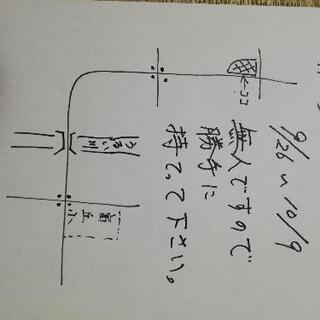 9/26〜10/9
無人ですので
勝手に
持てって下さい。
←ココ
うるい川
富丘小